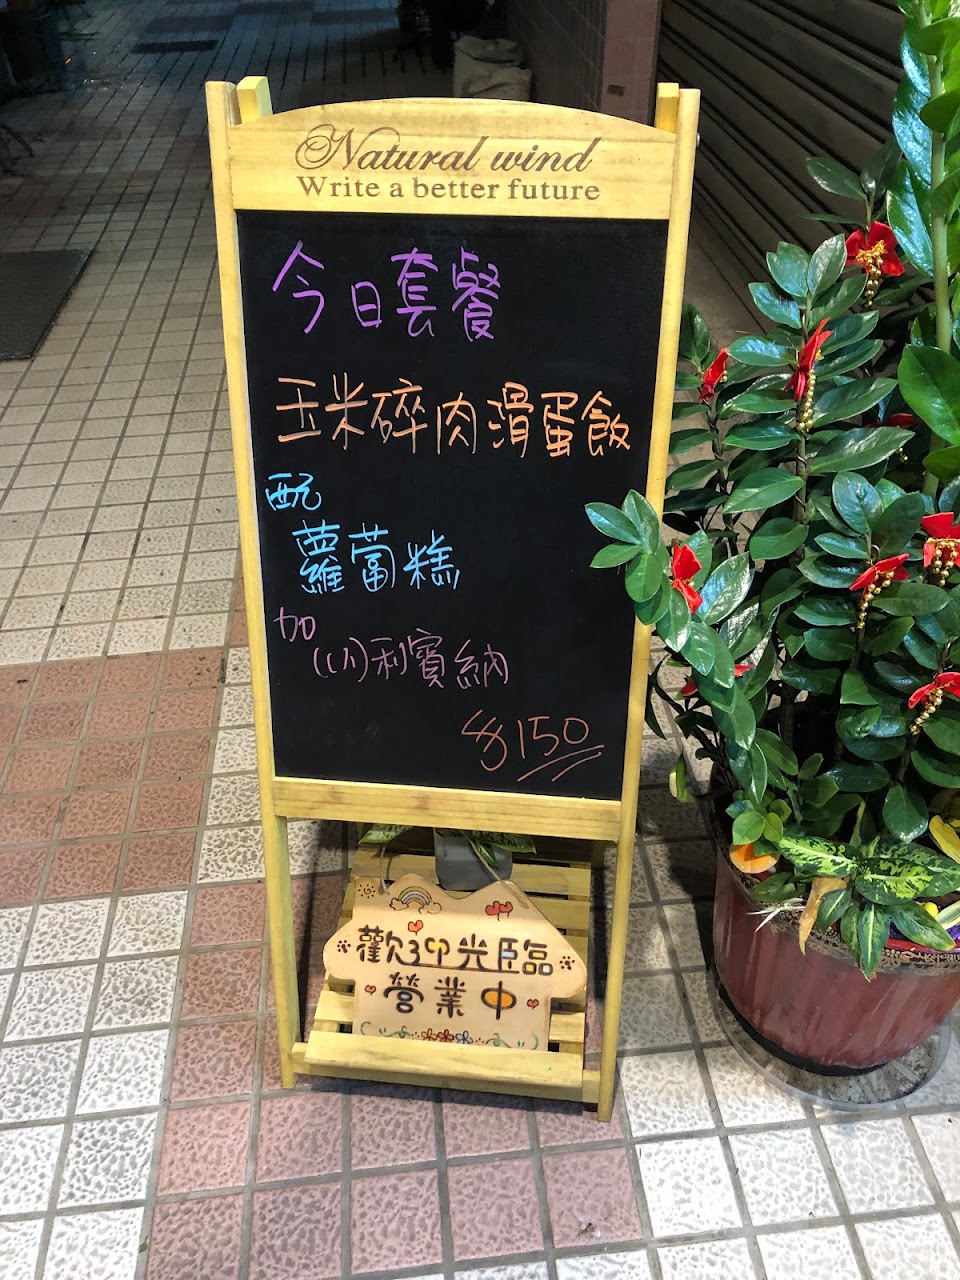 Natural wind
Write a better future
今日套餐
玉米碎肉滑蛋飯
配
蘿蔔糕
加
(小)利賓納
$150
歡迎光臨
營業中